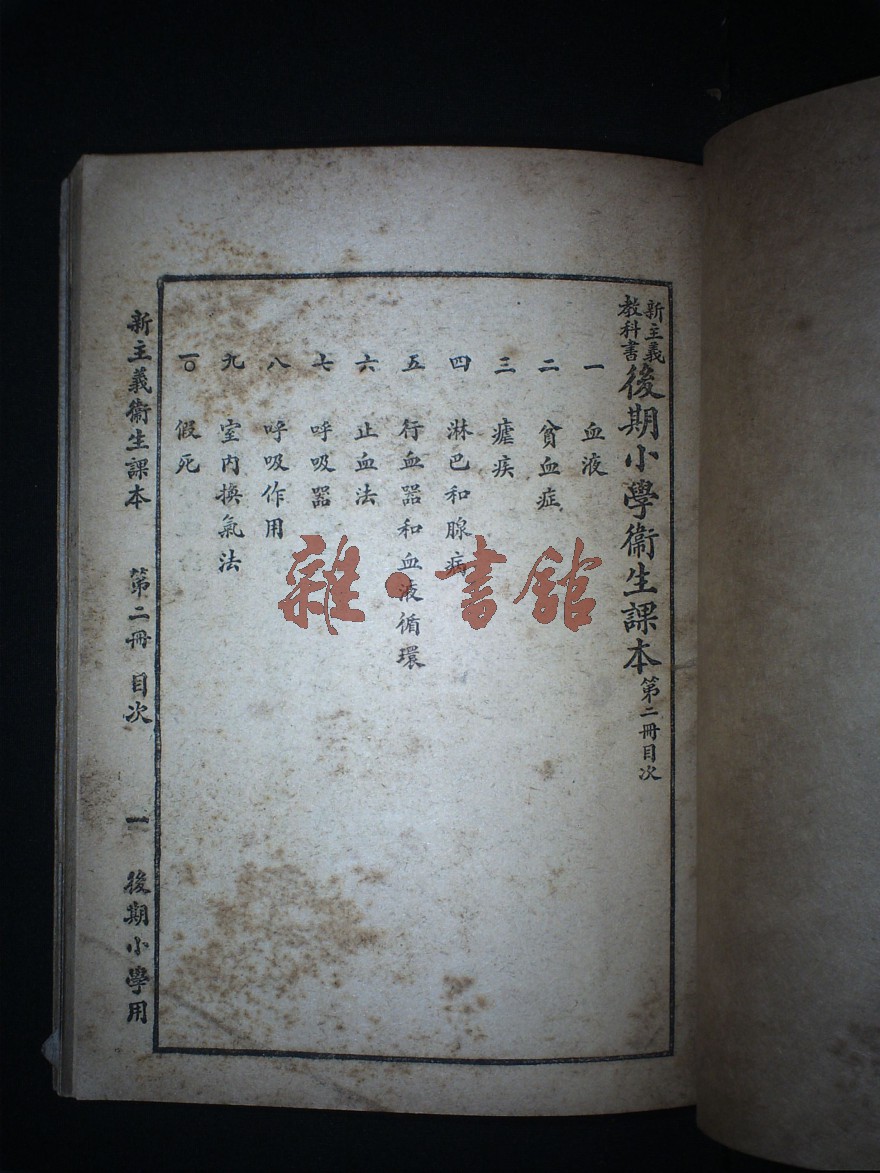 新主義
教科書
後期小學衞生課本
第二冊目次
一 血液
二 貧血症
三 瘧疾
四 淋巴和腺病
五 行血器和血液循環
六 止血法
七 呼吸器
八 呼吸作用
九 室內換氣法
一〇 假死
新主義衞生課本 第二冊 目次 一 後期小學用
雜·書館